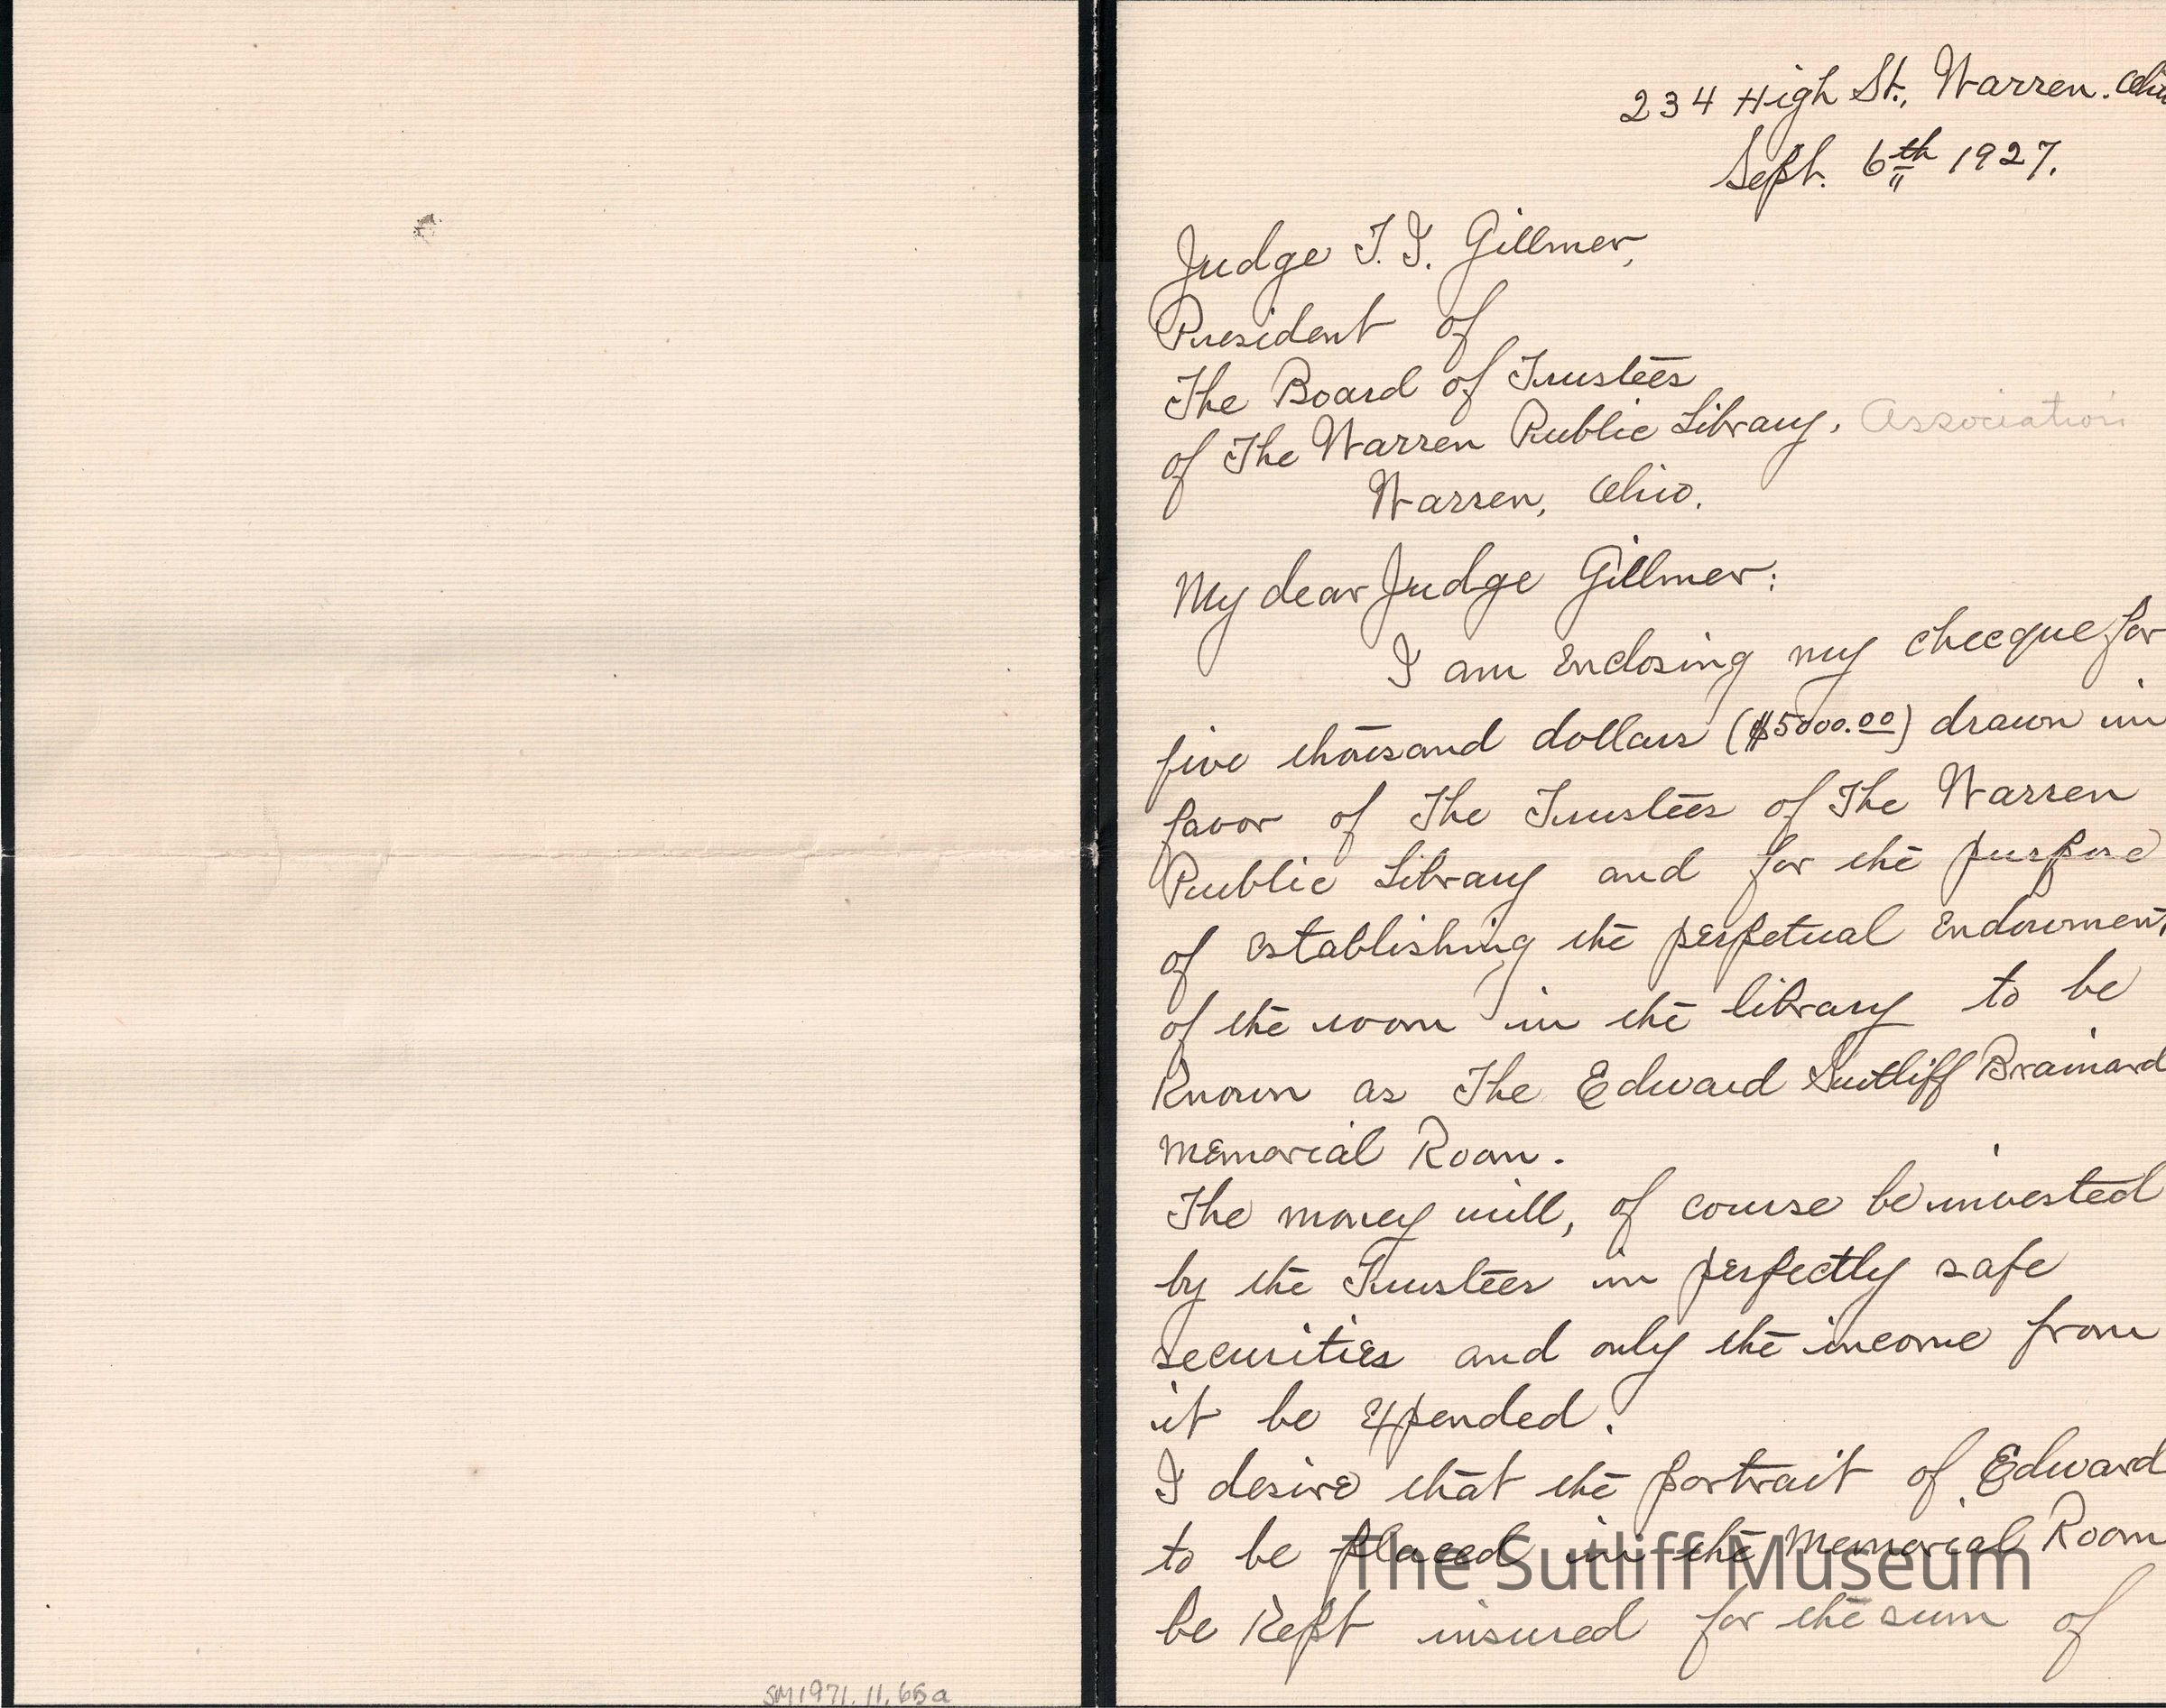 234 High St., Warren. Ohio
Sept. 6th 1927.
Judge T. I. Gillmer,
President of
The Board of Trustees
of The Warren Public Library, Association
Warren, Ohio.
My dear Judge Gillmer:
I am enclosing my checque for
five thousand dollars ($5000.00) drawn in
favor of The Trustees of The Warren
Public Library and for the purpose
of establishing the perpetual endowment
of the room in the library to be
known as The Edward Sutliff Brainard
Memorial Room.
The money will, of course be invested
by the Trustees in perfectly safe
securities and only the income from
it be expended.
I desire that the portrait of Edward
to be placed in the Memorial Room
The Sutliff Museum
be kept insured for the sum of
SM1971.11.65a